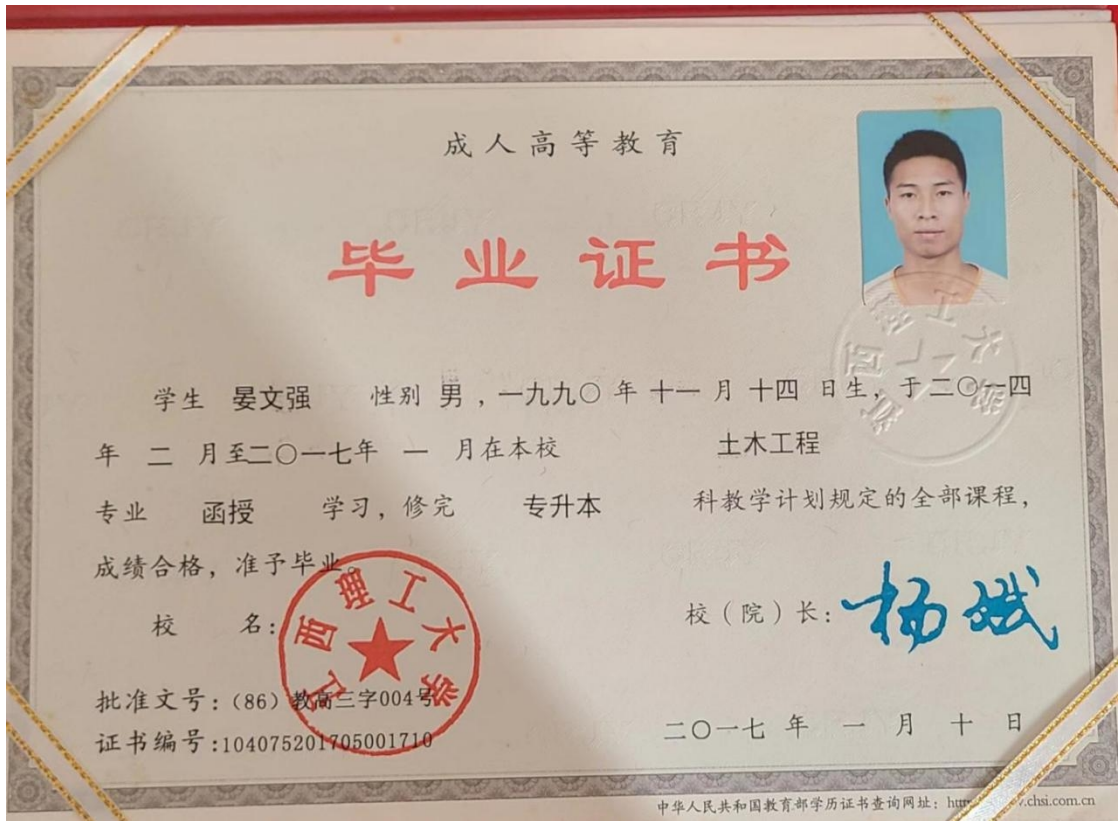 成人高等教育
毕业证书
学生 晏文强 性别 男，一九九〇年 十一 月 十四 日生，于二〇一四
年 二 月至二〇一七年 一 月在本校 土木工程
专业 函授 学习，修完 专升本 科教学计划规定的全部课程，
成绩合格，准予毕业。
校 名：
江西理工大学
校（院）长：杨斌
批准文号：（86）教高三字004号
证书编号:104075201705001710
二〇一七年 一 月 十 日
江西理工大学
中华人民共和国教育部学历证书查询网址：chsi.com.cn